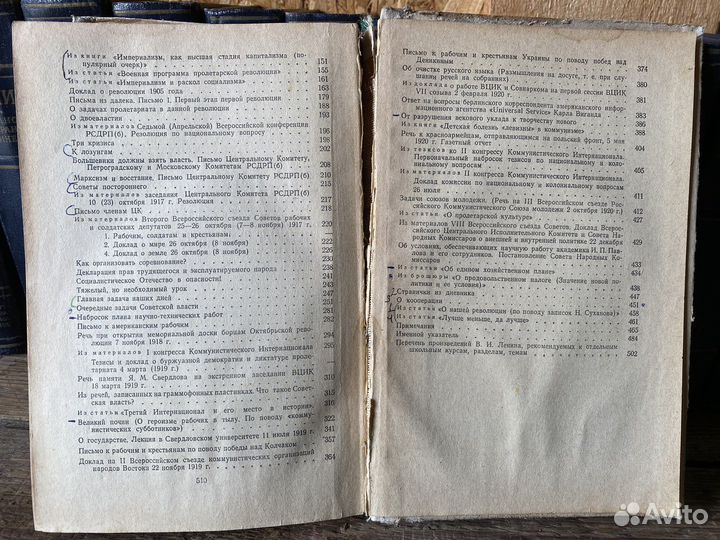 Из книги «Империализм, как высшая стадия капитализма (популярный очерк)» 151
Из статьи «Военная программа пролетарской революции» 155
Из статьи «Империализм и раскол социализма» 161
Доклад о революции 1905 года 163
Письма из далека. Письмо 1. Первый этап первой революции 179
О задачах пролетариата в данной революции 190
О двоевластии 193
Из материалов Седьмой (Апрельской) Всероссийской конференции
РСДРП(б). Резолюция по национальному вопросу 196
Три кризиса 198
К лозунгам 202
Большевики должны взять власть. Письмо Центральному Комитету,
Петроградскому и Московскому Комитетам РСДРП(б) 208
Марксизм и восстание. Письмо Центральному Комитету РСДРП(б) 210
Советы постороннего 215
Из материалов заседания Центрального Комитета РСДРП(б)
10 (23) октября 1917 г. Резолюция 217
Письмо членам ЦК 218
Из материалов Второго Всероссийского съезда Советов рабочих
и солдатских депутатов 25—26 октября (7—8 ноября) 1917 г. 220
1. Рабочим, солдатам и крестьянам!
2. Доклад о мире 26 октября (8 ноября)
4. Доклад о земле 26 октября (8 ноября)
Как организовать соревнование?
Декларация прав трудящегося и эксплуатируемого народа
Социалистическое Отечество в опасности!
Тяжелый, но необходимый урок
Главная задача наших дней
Очередные задачи Советской власти 251
Набросок плана научно-технических работ 281
Письмо к американским рабочим 282
Речь при открытии мемориальной доски борцам Октябрьской революции 7 ноября 1918 г. 294
Из материалов I конгресса Коммунистического Интернационала 295
Тезисы и доклад о буржуазной демократии и диктатуре пролетариата 4 марта (1919 г.)
Речь памяти Я. М. Свердлова на экстренном заседании ВЦИК
18 марта 1919 г. 310
Из речей, записанных на граммофонных пластинках. Что такое Советская власть? 315
Из статьи «Третий Интернационал и его место в истории»
Великий почин (О героизме рабочих в тылу. По поводу «коммунистических субботников») 322
О государстве. Лекция в Свердловском университете 11 июля 1919 г. 341
Письмо к рабочим и крестьянам по поводу победы над Колчаком 357
Доклад на II Всероссийском съезде коммунистических организаций
народов Востока 22 ноября 1919 г. 364
510
Письмо к рабочим и крестьянам Украины по поводу побед над
Деникиным 374
Об очистке русского языка (Размышления на досуге, т. е. при слушании речей на собраниях) 380
Из доклада о работе ВЦИК и Совнаркома на первой сессии ВЦИК
VII созыва 2 февраля 1920 г. 381
Ответ на вопросы берлинского корреспондента американского информационного агентства «Universal Service» Карла Виганда 384
От разрушения векового уклада к творчеству нового 386
Из книги «Детская болезнь «левизны» в коммунизме» 388
Речь к красноармейцам, отправляющимся на польский фронт, 5 мая
1920 г. Газетный отчет
Из тезисов ко II конгрессу Коммунистического Интернационала.
Первоначальный набросок тезисов по национальному и колониальному вопросам
Из материалов II конгресса Коммунистического Интернационала.
Доклад комиссии по национальному и колониальному вопросам
26 июля 411
Задачи союзов молодежи. (Речь на III Всероссийском съезде Российского Коммунистического Союза молодежи 2 октября 1920 г.) 415
Из статьи «О пролетарской культуре»
Из материалов VIII Всероссийского съезда Советов. Доклад Всероссийского Центрального Исполнительного Комитета и Совета Народных Комиссаров о внешней и внутренней политике 22 декабря 429
Об условиях, обеспечивающих научную работу академика И. П. Павлова и его сотрудников. Постановление Совета Народных Комиссаров
Из статьи «Об едином хозяйственном плане» 434
Из брошюры «О продовольственном налоге (Значение новой политики и ее условия)» 438
Странички из дневника 447
О кооперации 451
Из статьи «О нашей революции (по поводу записок Н. Суханова)» 458
Из статьи «Лучше меньше, да лучше» 461
Примечания 465
Именной указатель 484
Перечень произведений В. И. Ленина, рекомендуемых к отдельным
школьным курсам, разделам, темам 502
Avito